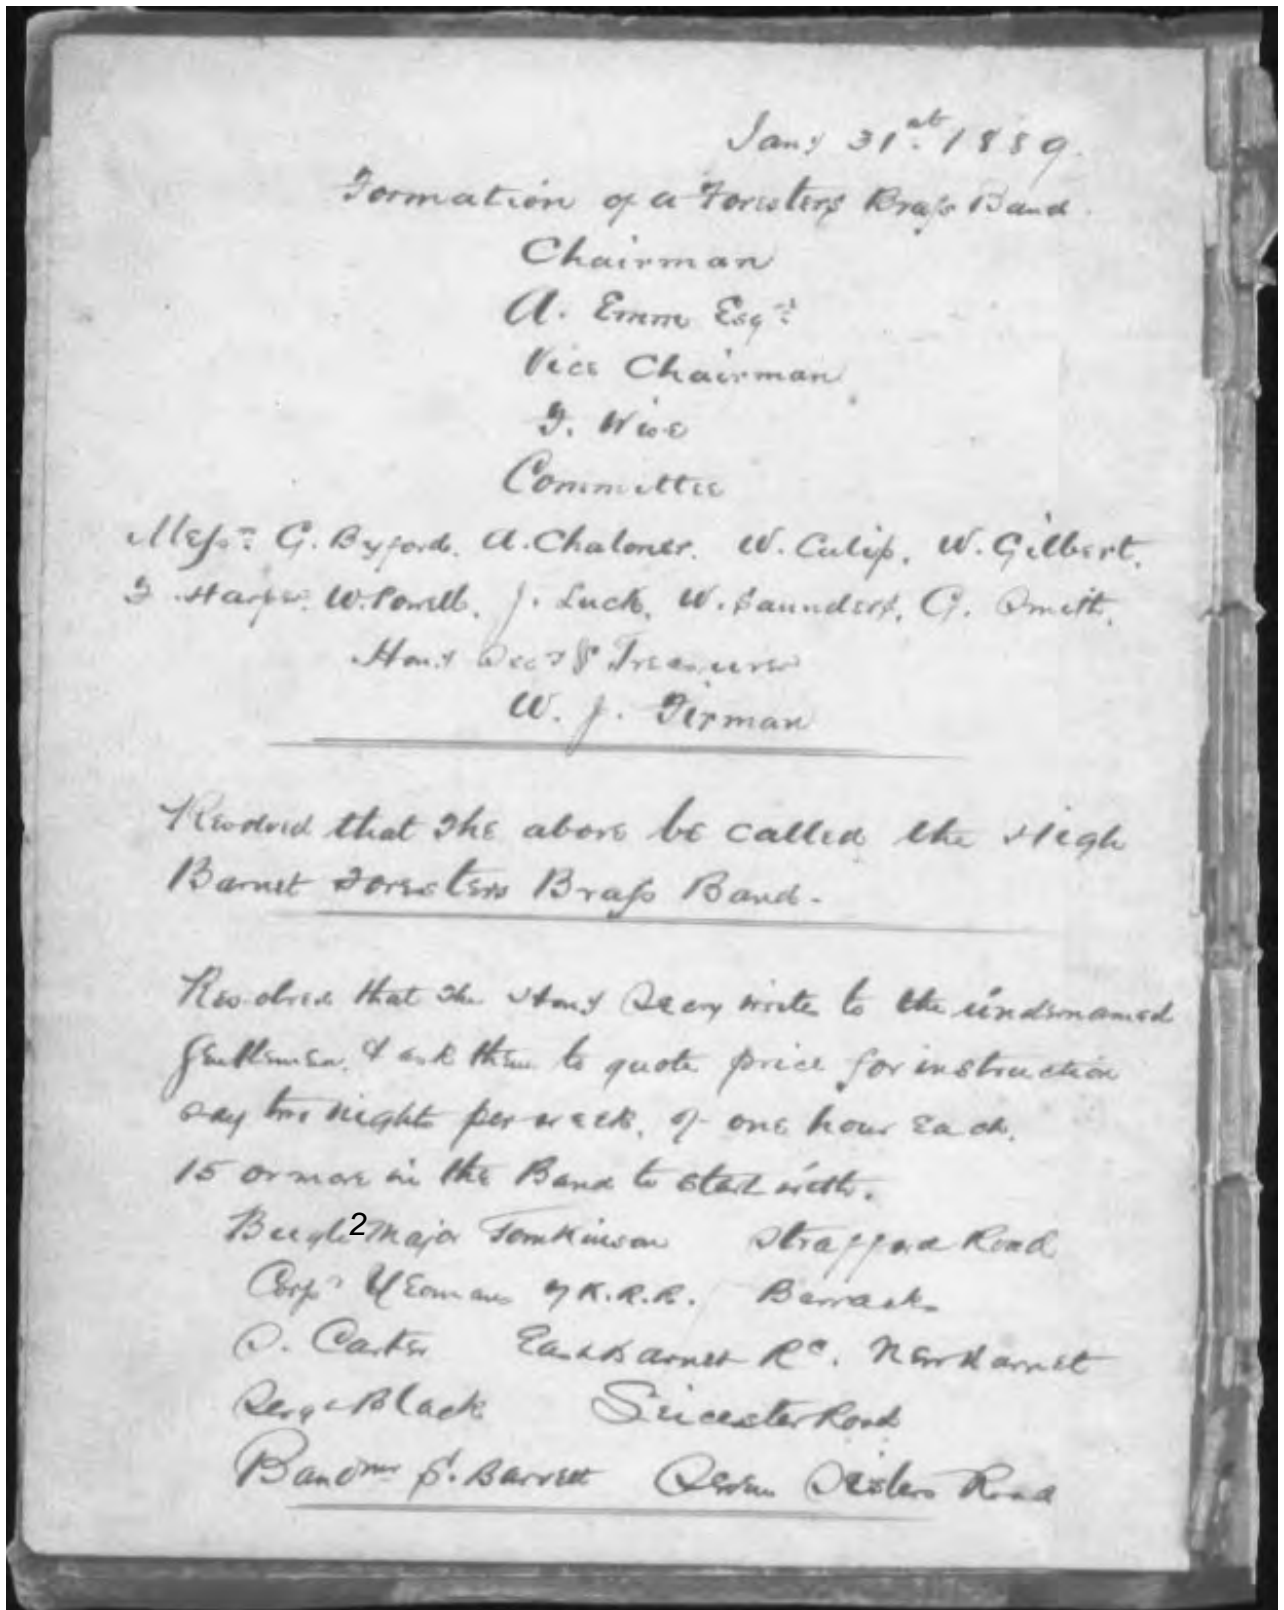 Jany 31st 1889.
Formation of a Foresters Brass Band.
Chairman
A. Emm Esqr
Vice Chairman
F. Wise
Committee
Messrs G. Byford. A. Chaloner. W. Culip. W. Gilbert.
F. Harper. W. Powell. J. Luck. W. Saunders. G. Smith.
Hony Secy & Treasurer
W. J. Firman
Resolved that the above be called the High
Barnet Foresters Brass Band.
Resolved that the Hony Secy write to the undernamed
gentlemen, & ask them to quote price for instruction
say two nights per week, of one hour each.
15 or more in the Band to start with.
Bugle Major Tomkinson Strafford Road
2
Corpl Yeomans of K.R.R. Barracks
S. Carter East Barnet Rd. New Barnet
Sergt Black Leicester Road
Bandmr S. Barrett Seven Sisters Road